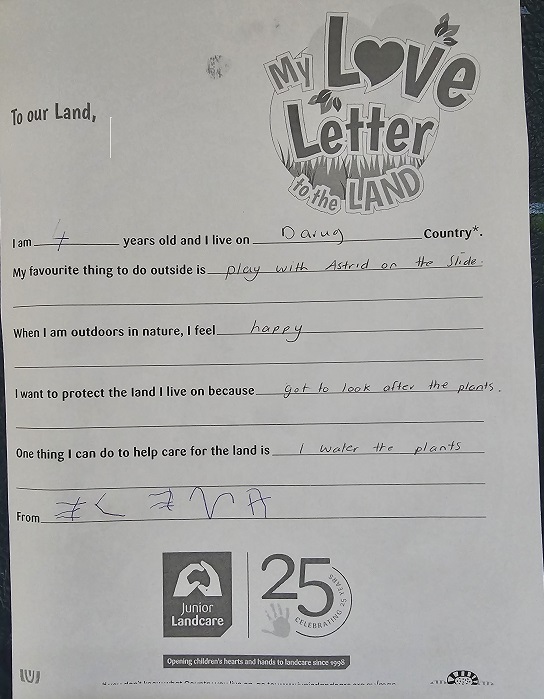 My Love
Letter
to the LAND
To our Land,
I am 4 years old and I live on Darug Country*.
My favourite thing to do outside is play with Astrid on the slide.
When I am outdoors in nature, I feel happy
I want to protect the land I live on because got to look after the plants.
One thing I can do to help care for the land is I water the plants
From
Junior
Landcare
25
CELEBRATING 25 YEARS
Opening children's hearts and hands to landcare since 1998